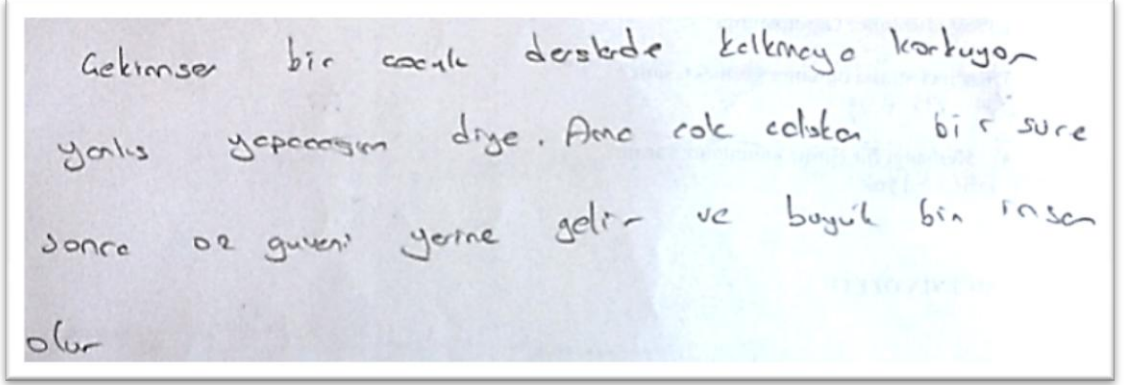 Çekimser bir cocuk derslerde kalkmaya korkuyor
yanlıs yapacagım diye. Ama cok calıskan bir sure
sonra oz guveni yerine gelir ve buyük bir insan
olur